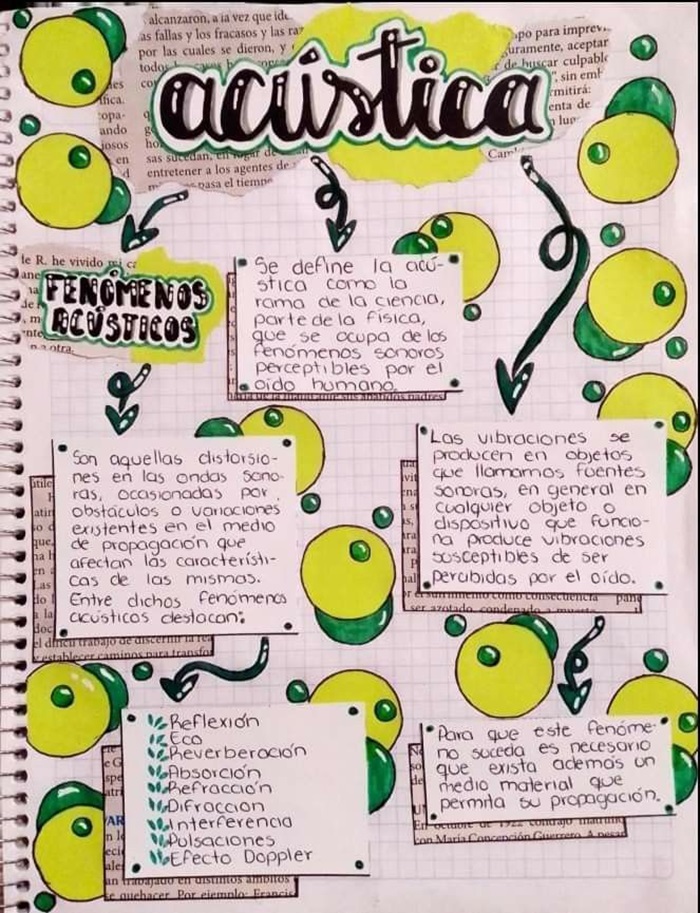 alcanzaron, a la vez que
as fallas y los fracasos y las
por las cuales se dieron, y
acústica
sas sucedan, en lugar de
entretener a los agentes de
pasa el tiempo
po para
aceptar
de buscar
sin
mitirá:
enta de
de R. he vivido mi
FENÓMENOS
ACÚSTICOS
a otra.
Se define la acú-
stica como la
rama de la ciencia,
parte de la física,
que se ocupa de los
fenómenos sonoros
perceptibles por el
oído humano.
Son aquellas distorsio-
nes en las ondas sono-
ras, ocasionadas por
obstáculos o variaciones
existentes en el medio
de propagación que
afectan las característi-
cas de las mismas.
Entre dichos fenómenos
acústicos destacan:
el difícil trabajo de discernir la
y establecer caminos para
Las vibraciones se
producen en objetos
que llamamos fuentes
sonoras, en general en
cualquier objeto o
dispositivo que funcio-
na produce vibraciones
susceptibles de ser
percibidas por el oído.
el sufrimiento como consecuencia
ser azotado, condenado a muerte
Reflexión
Eco
Reverberación
Absorción
Refracción
Difraccion
Interferencia
Pulsaciones
Efecto Doppler
han trabajado en distintos ámbitos
se quehacer. Por ejemplo: Francis
Para que este fenóme-
no suceda es necesario
que exista además un
medio material que
permita su propagación.
En octubre de 1922 contrajo
con María Concepción Guerrero. A pesar